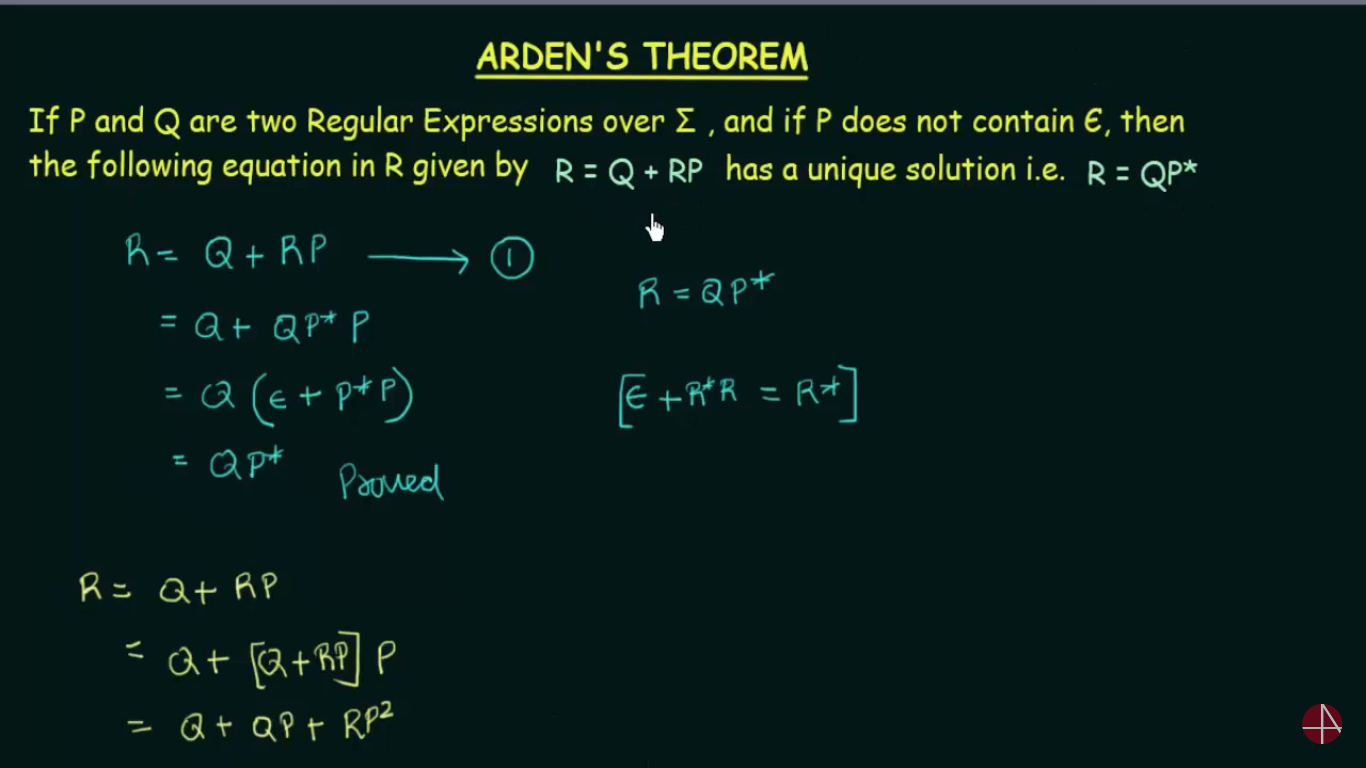 ARDEN'S THEOREM
If P and Q are two Regular Expressions over Σ , and if P does not contain Є, then
the following equation in R given by R = Q + RP has a unique solution i.e. R = QP*
R = Q + RP ⟶ ①
R = QP*
= Q + QP* P
= Q (ϵ + P*P)
[ϵ + R*R = R*]
= QP* Proved
R = Q + RP
= Q + [Q + RP] P
= Q + QP + RP²